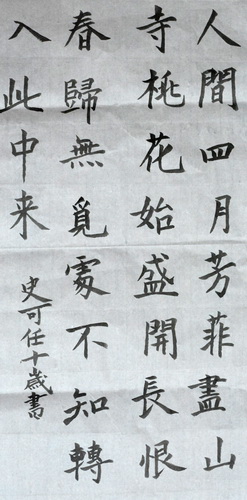 人間四月芳菲盡山
寺桃花始盛開長恨
春歸無覓處不知轉
入此中来
史可任十歲書